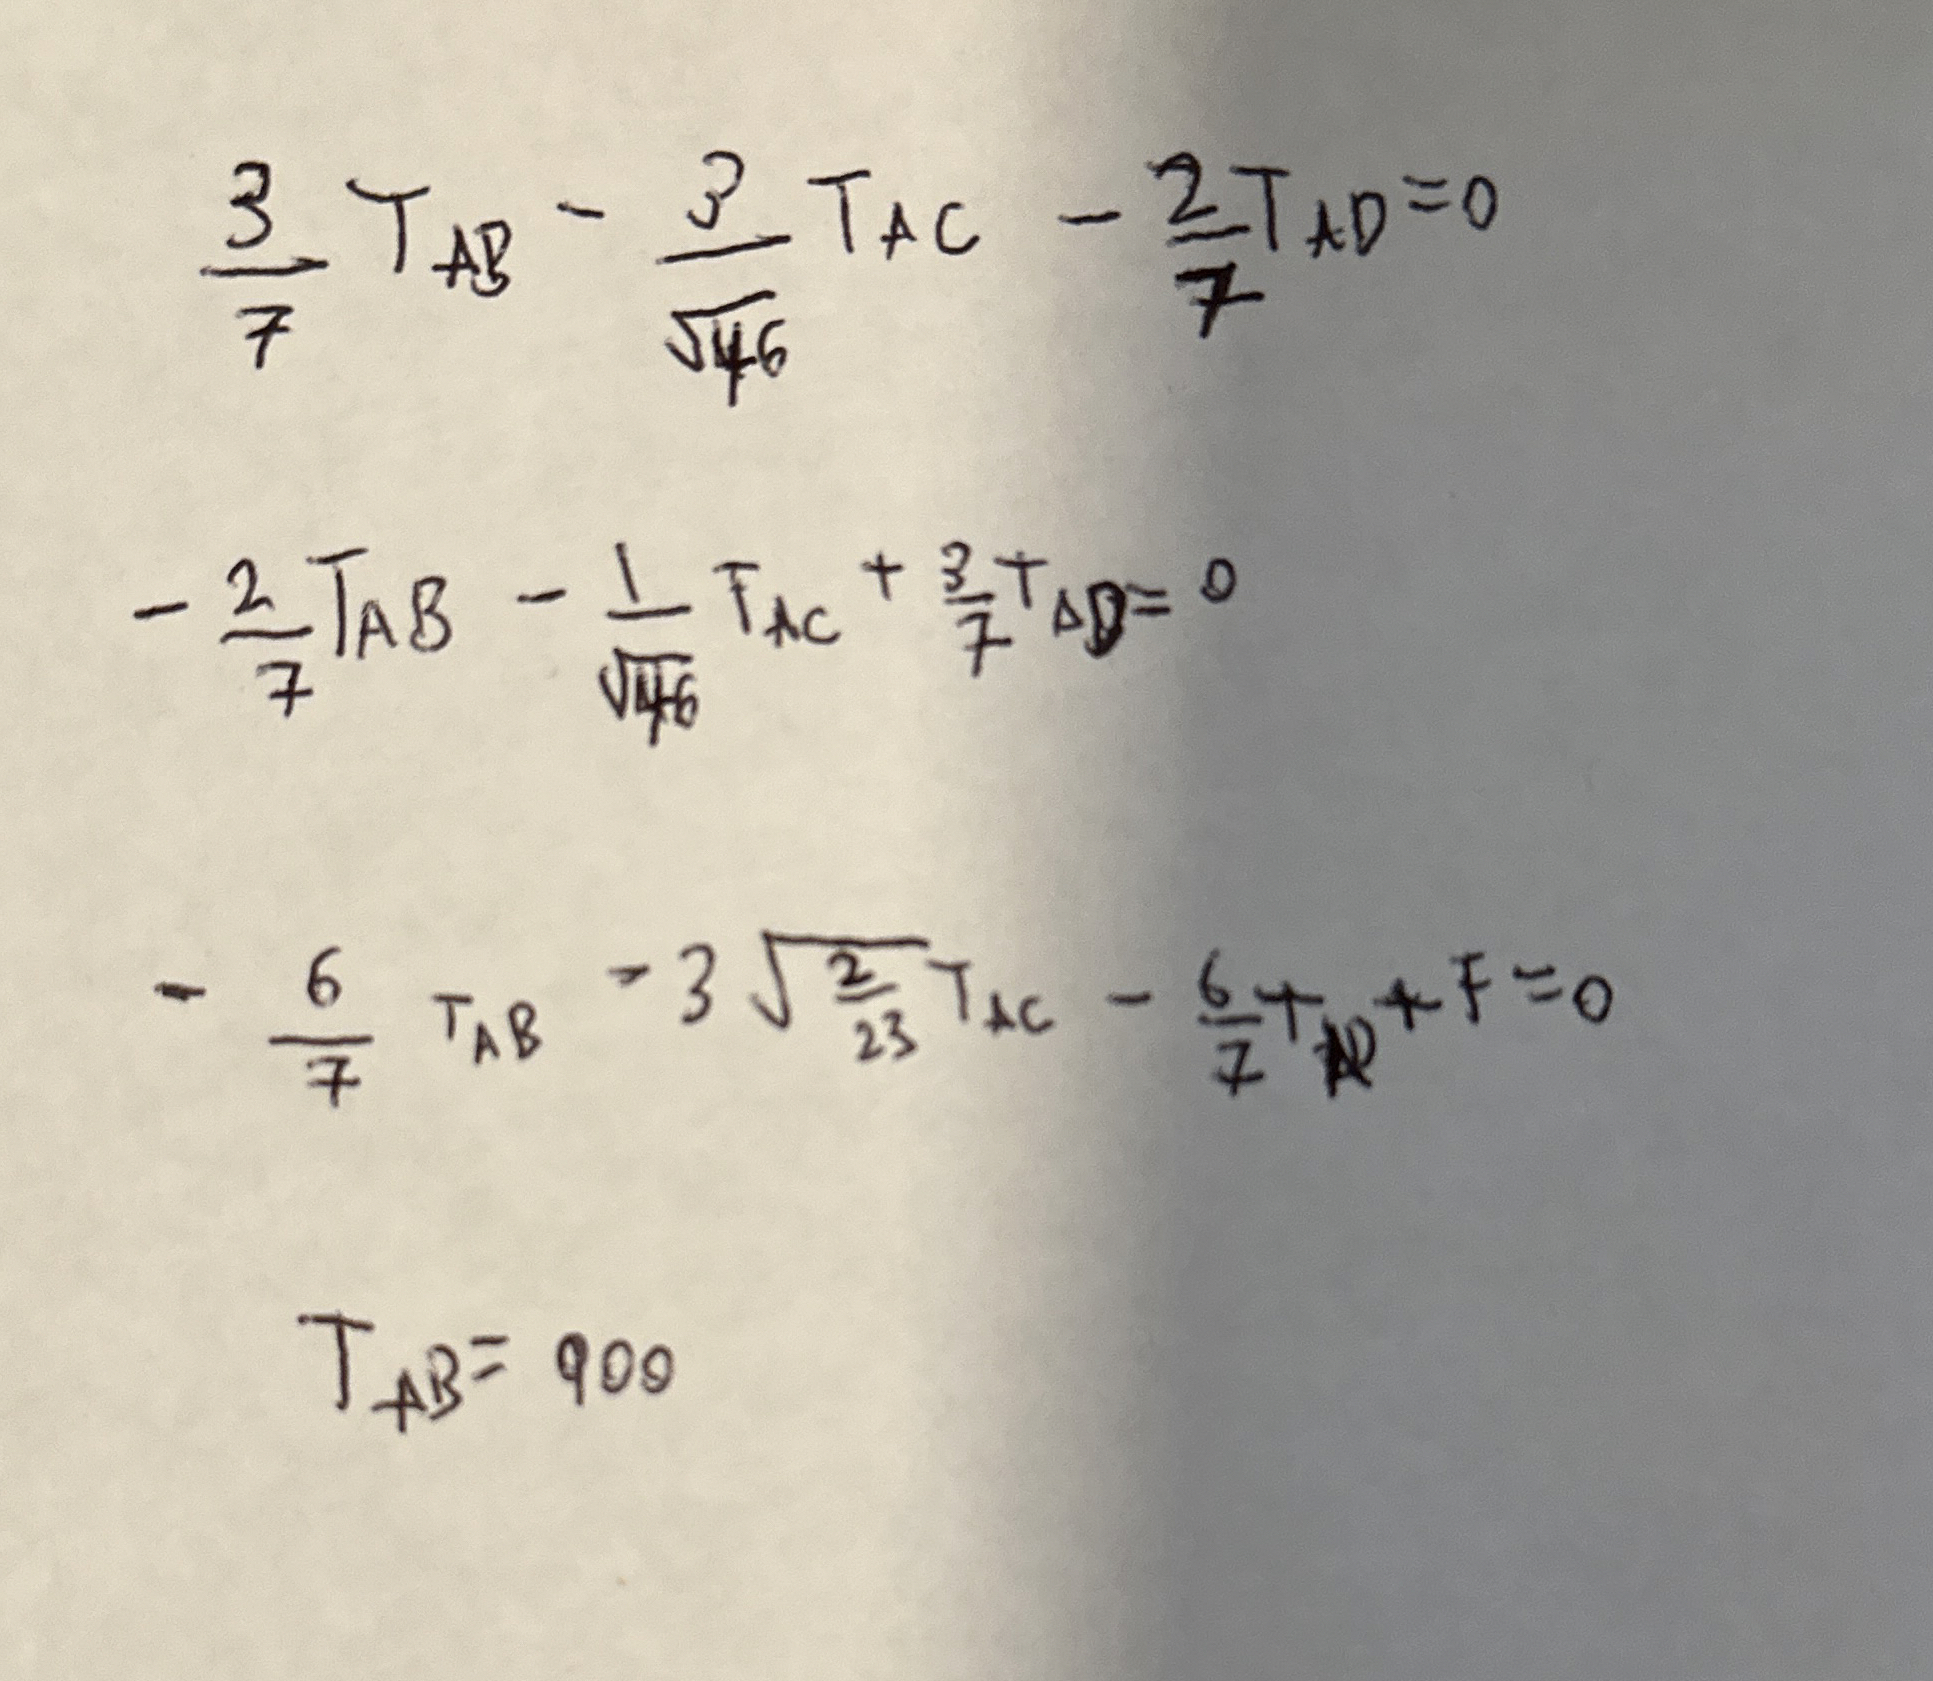 3/7 T_AB - 3/√46 T_AC - 2/7 T_AD = 0
- 2/7 T_AB - 1/√46 T_AC + 3/7 T_AD = 0
- 6/7 T_AB - 3√(2/23) T_AC - 6/7 T_AD + F = 0
T_AB = 900